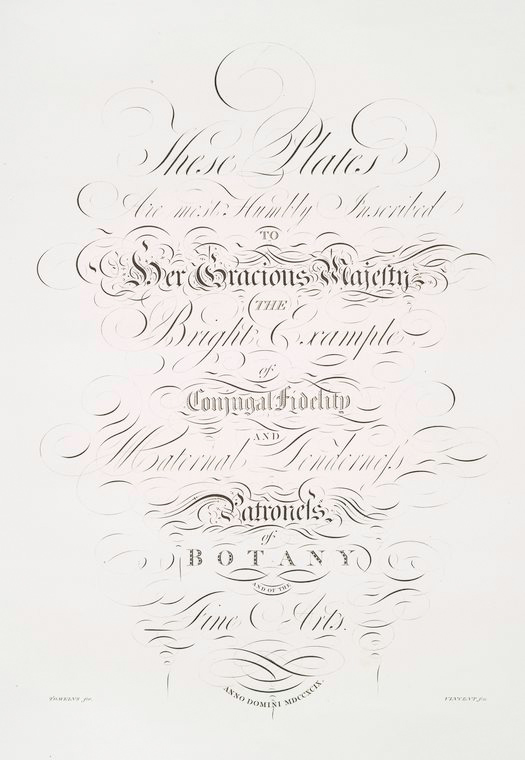 These Plates
Are most Humbly Inscribed
TO
Her Gracious Majeſty
THE
Bright Example
of
Conjugal Fidelity
AND
Maternal Tenderneſs
Patroneſs
of
BOTANY
AND OF THE
Fine Arts.
ANNO DOMINI MDCCXCIX.
TOMKINS
VINCENT